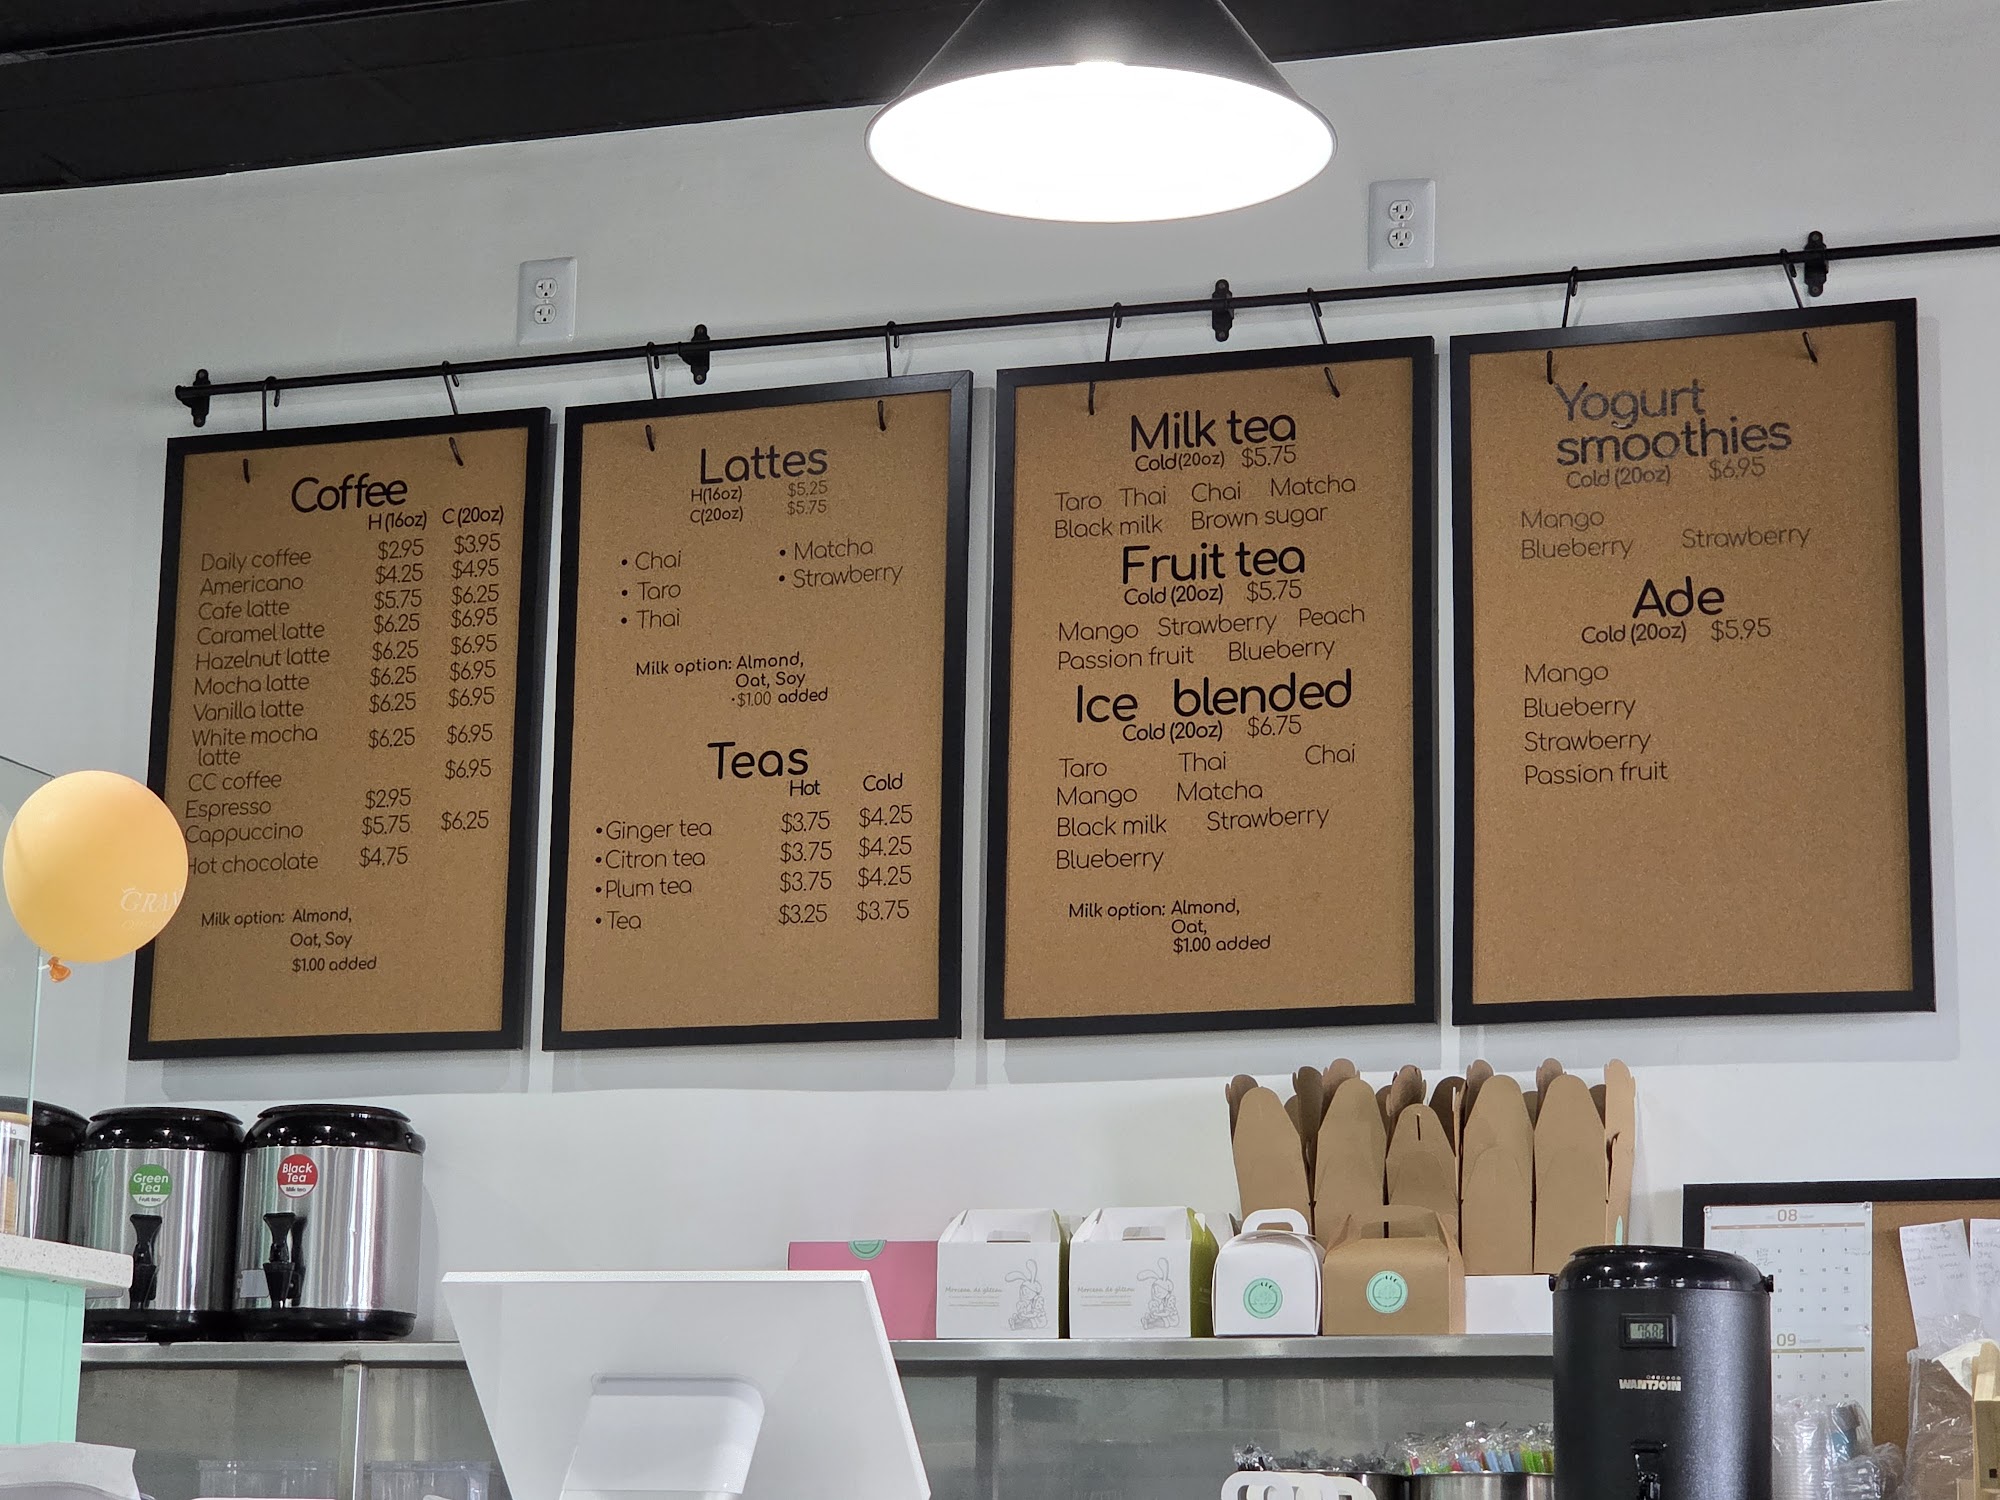 Coffee
H (16oz) C (20oz)
Daily coffee $2.95 $3.95
Americano $4.25 $4.95
Cafe latte $5.75 $6.25
Caramel latte $6.25 $6.95
Hazelnut latte $6.25 $6.95
Mocha latte $6.25 $6.95
Vanilla latte $6.25 $6.95
White mocha $6.25 $6.95
latte
CC coffee $6.95
Espresso $2.95
Cappuccino $5.75 $6.25
Hot chocolate $4.75
Milk option: Almond,
Oat, Soy
$1.00 added
Lattes
H(16oz) $5.25
C(20oz) $5.75
• Chai • Matcha
• Taro • Strawberry
• Thai
Milk option: Almond,
Oat, Soy
•$1.00 added
Teas
Hot Cold
•Ginger tea $3.75 $4.25
•Citron tea $3.75 $4.25
•Plum tea $3.75 $4.25
•Tea $3.25 $3.75
Milk tea
Cold(20oz) $5.75
Taro Thai Chai Matcha
Black milk Brown sugar
Fruit tea
Cold (20oz) $5.75
Mango Strawberry Peach
Passion fruit Blueberry
Ice blended
Cold (20oz) $6.75
Taro Thai Chai
Mango Matcha
Black milk Strawberry
Blueberry
Milk option: Almond,
Oat,
$1.00 added
Yogurt
smoothies
Cold (20oz) $6.95
Mango
Blueberry Strawberry
Ade
Cold (20oz) $5.95
Mango
Blueberry
Strawberry
Passion fruit
GRAN
Green
Tea
Fruit tea
Black
Tea
Milk tea
08
09
WANTJOIN